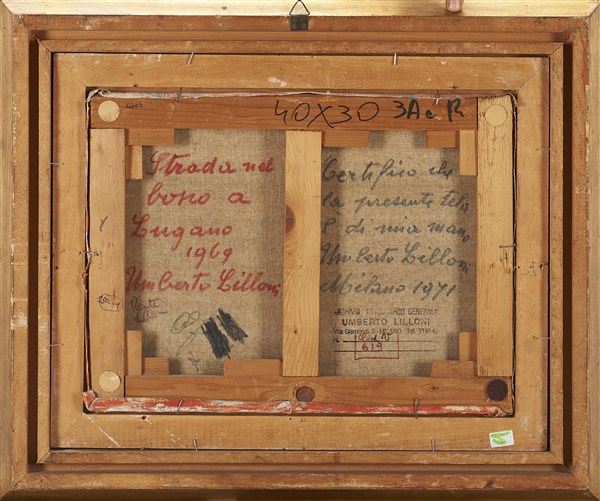 40X30 3A e R
Strada nel
bosco a
Lugano
1969
Umberto Lilloni
Certifico che
la presente tela
è di mia mano
Umberto Lilloni
Milano 1971
ARCHIVIO GENERALE
UMBERTO LILLONI
MILANO Tel.
619